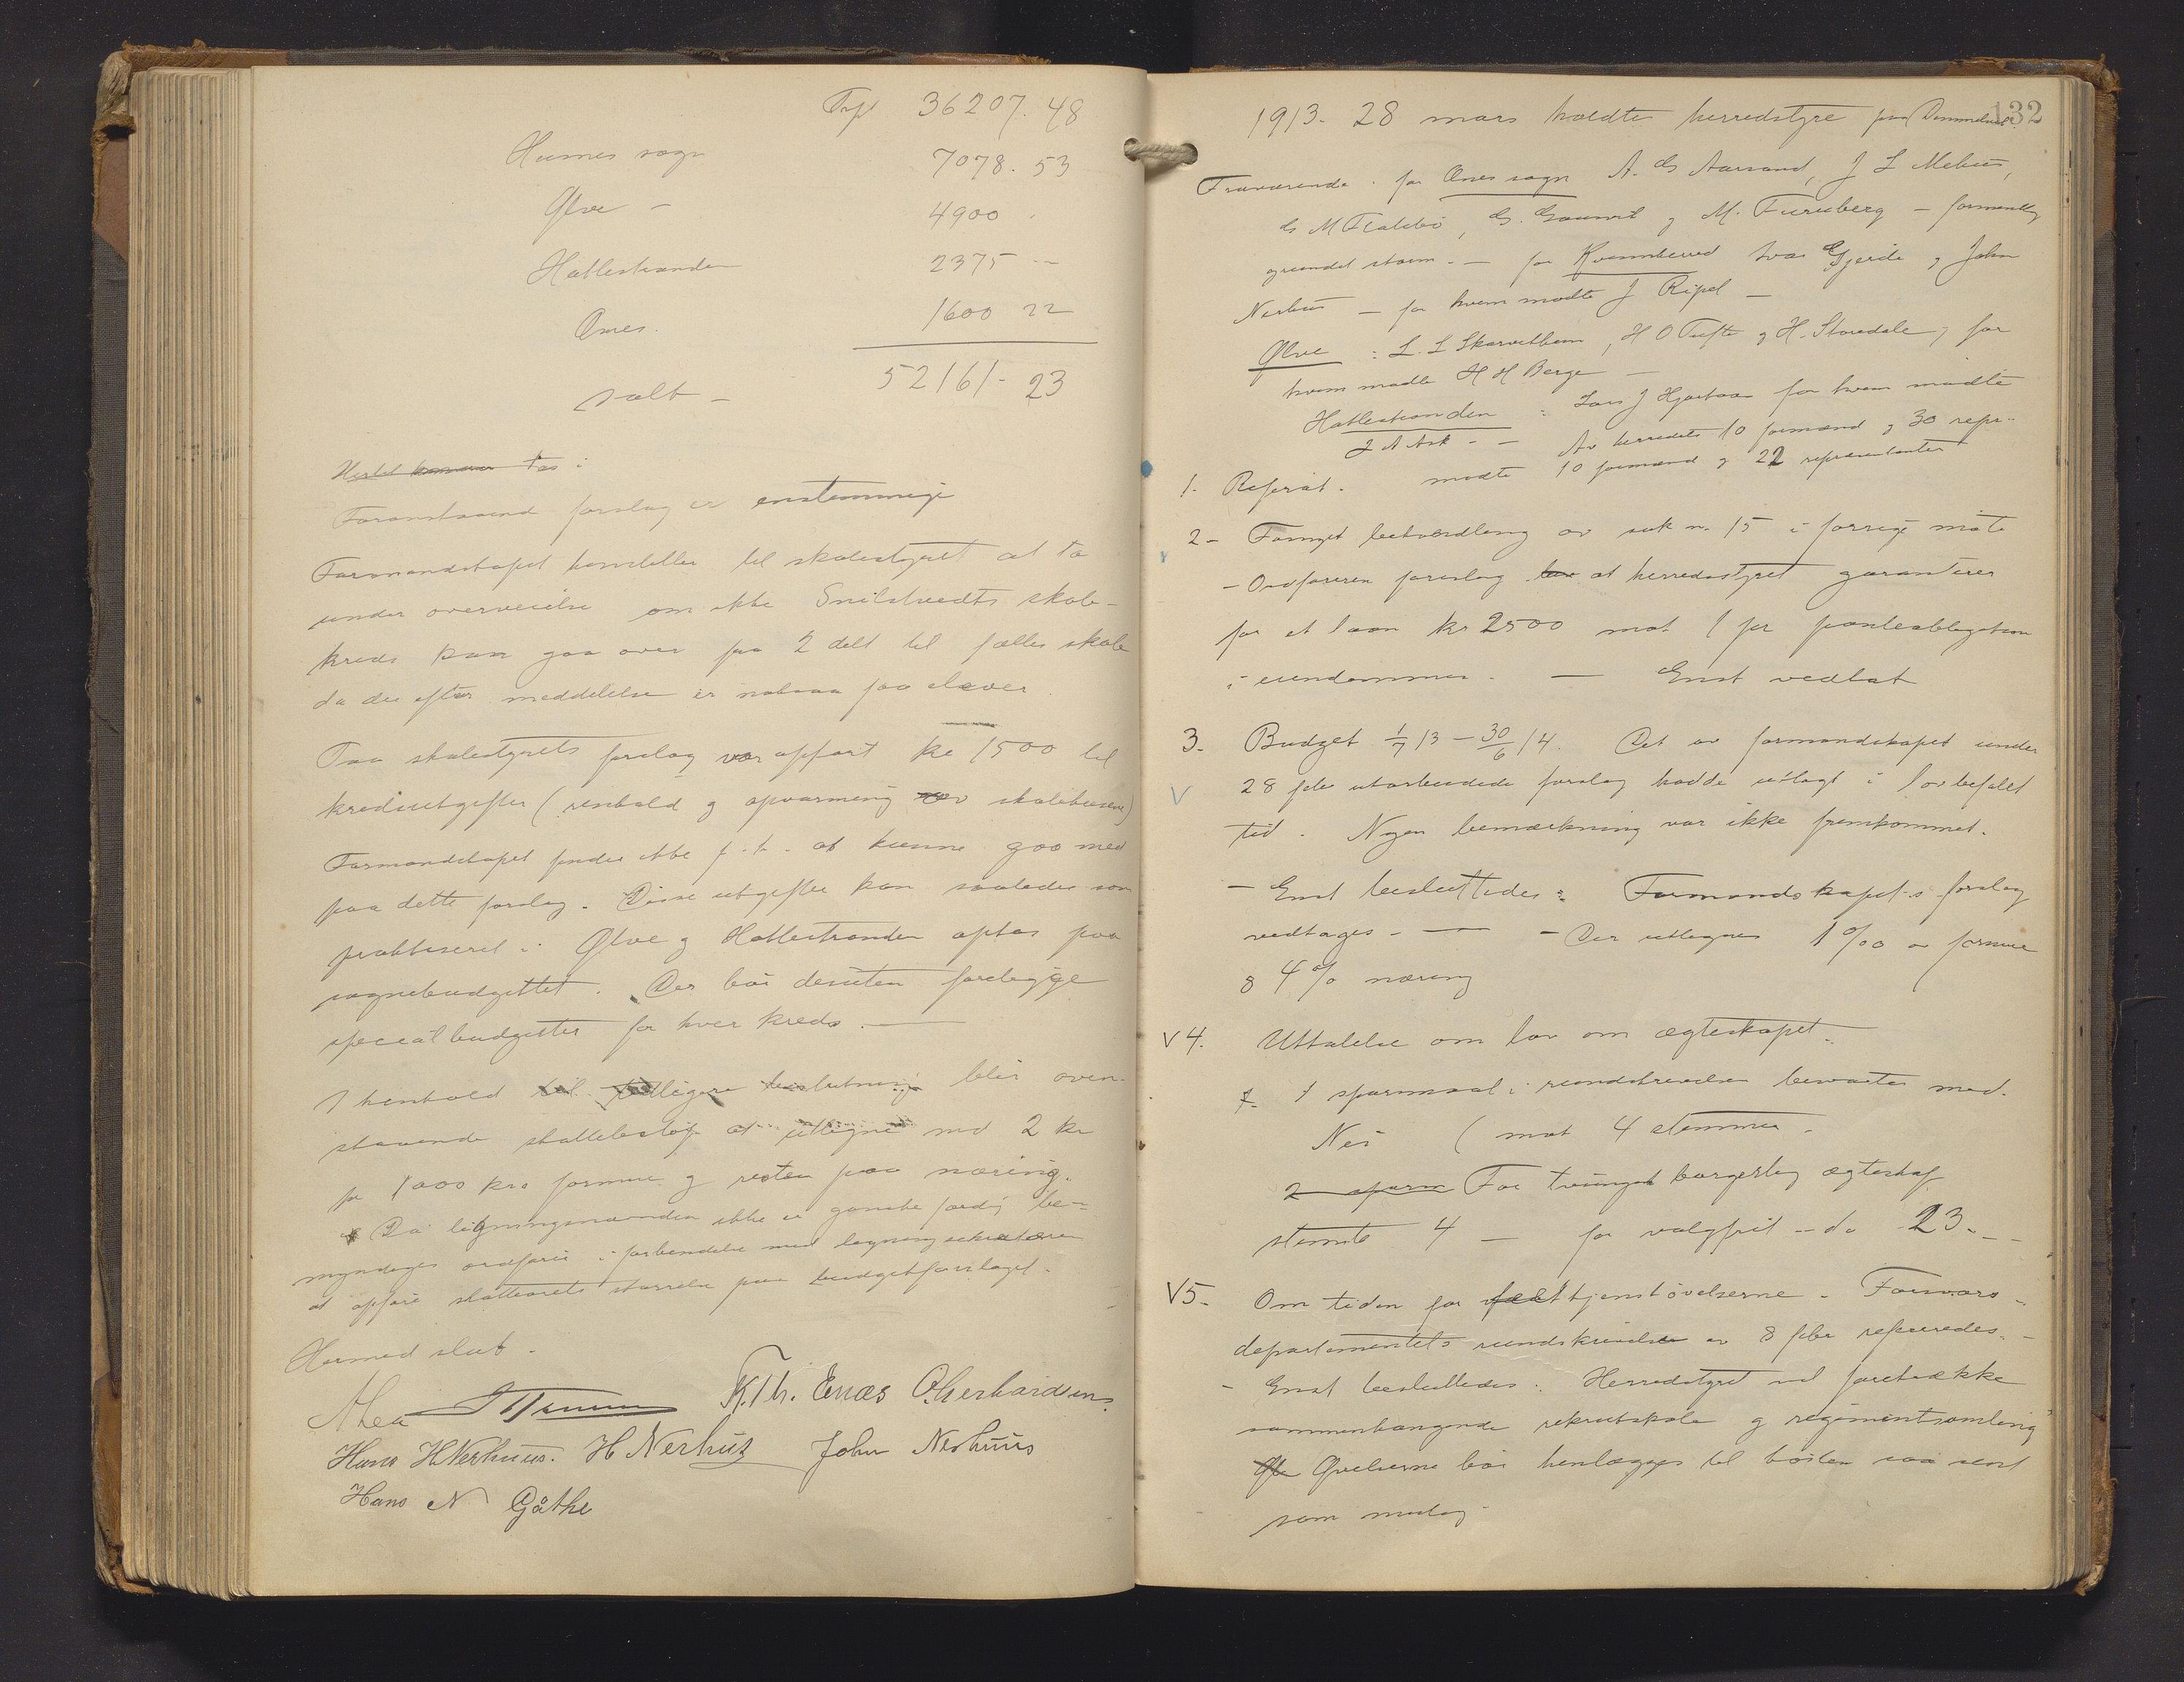 Trp 36207.48
Humes sogn 7078.53
Ølve - 4900
Hatlestranden 2375 --
Ænes. 1600 22
Salt - 52161- 23
Hertil kommer tas :
Foranstaaend forslag er enstemmige
Formandskapet henstiller til skolestyret at ta
under overveielse om ikke Snilstvedts skole-
kreds kan gaa over fra 2 delt til fælles skole
da der efter meddelelse er nokaa faa elever.
Paa skolestyrets forslag var opført kr 1500 til
kredsutgifter (renhold og opvarming av skolehusene)
Formandskapet finder ikke f. t. at kunne gaa med
paa dette forslag. Disse utgifter kan saaledes som
praktiseret i Ølve og Hatlestranden optas paa
sognebudgettet. Der bør desuten foreligge
specialbudgetter for hver kreds. —
I henhold til tidligere beslutning blir oven-
staaende skattebeløp at utligne med 2 kr
pr 1000 kr. formue og resten paa næring.
Da ligningsnævnden ikke er ganske færdig be-
myndiges ordfører i forbindelse med ligningssekretæren
at opføre skatteørets størrelse paa budgetforslaget.
Hermed slut.
K. Th. Enæs O. Gerhardsen
Hans H Nerhuus. H Nerhus John Nerhuus
Hans N Gåthe
132
1913. 28 mars holdtes herredstyre paa
Fraværende : for Ænes sogn A. G Aarsand, J L Mehus,
G M Flatebø, G. Gaunvit og M. Furuberg — formentlig
grundet storm. — for Kvinnherred Ivar Gjerde og John
Nerhus — for hvem møtte J Ripel —
Ølve : L. L Skarvetbem, H O Tufte og H. Storedale, for
hvem møtte H H Berge —
Hatlestranden : Lars J Hjartaas for hvem møtte
J A Ask - — Av herredets 10 formænd og 30 repr..
1. Referat. møtte 10 formænd og 22 repræsentanter
2- Fornyet behandling av sak nr. 15 i forrige møte
- Ordføreren foreslog at herredsstyret garanterer
for et laan kr 2500 mot 1 pr panteobligation
i eiendommen. — Enst vedtat
3. Budget 1/7 13 - 30/6 14. Det av formandskapet under
V 28 febr utarbeidede forslag hadde utlagt i lovbefalt
tid. Nogen bemærkning var ikke fremkommet.
- Enst besluttedes : Formandskapets forslag
vedtages - — - Der utlignes 1‰ av formue
& 4% næring
V 4. Uttalelse om lov om ægteskapet.
1 spørsmaal i rundskrivelsen besvartes med.
Nei ( mot 4 stemmer.
2 spørsm For tvungent borgerlig ægteskap
stemte 4 — for valgfrit - do 23 - -
V 5. Om tiden for felttjenstøvelserne. Forsvars-
departementets rundskrivelse av 8 febr refereredes. -
- Enst besluttedes : Herredstyret vil foretrække
sammenhængende rekrutskole og regimentsamling
Øvelserne bør henlægges til høsten saa sent
som mulig